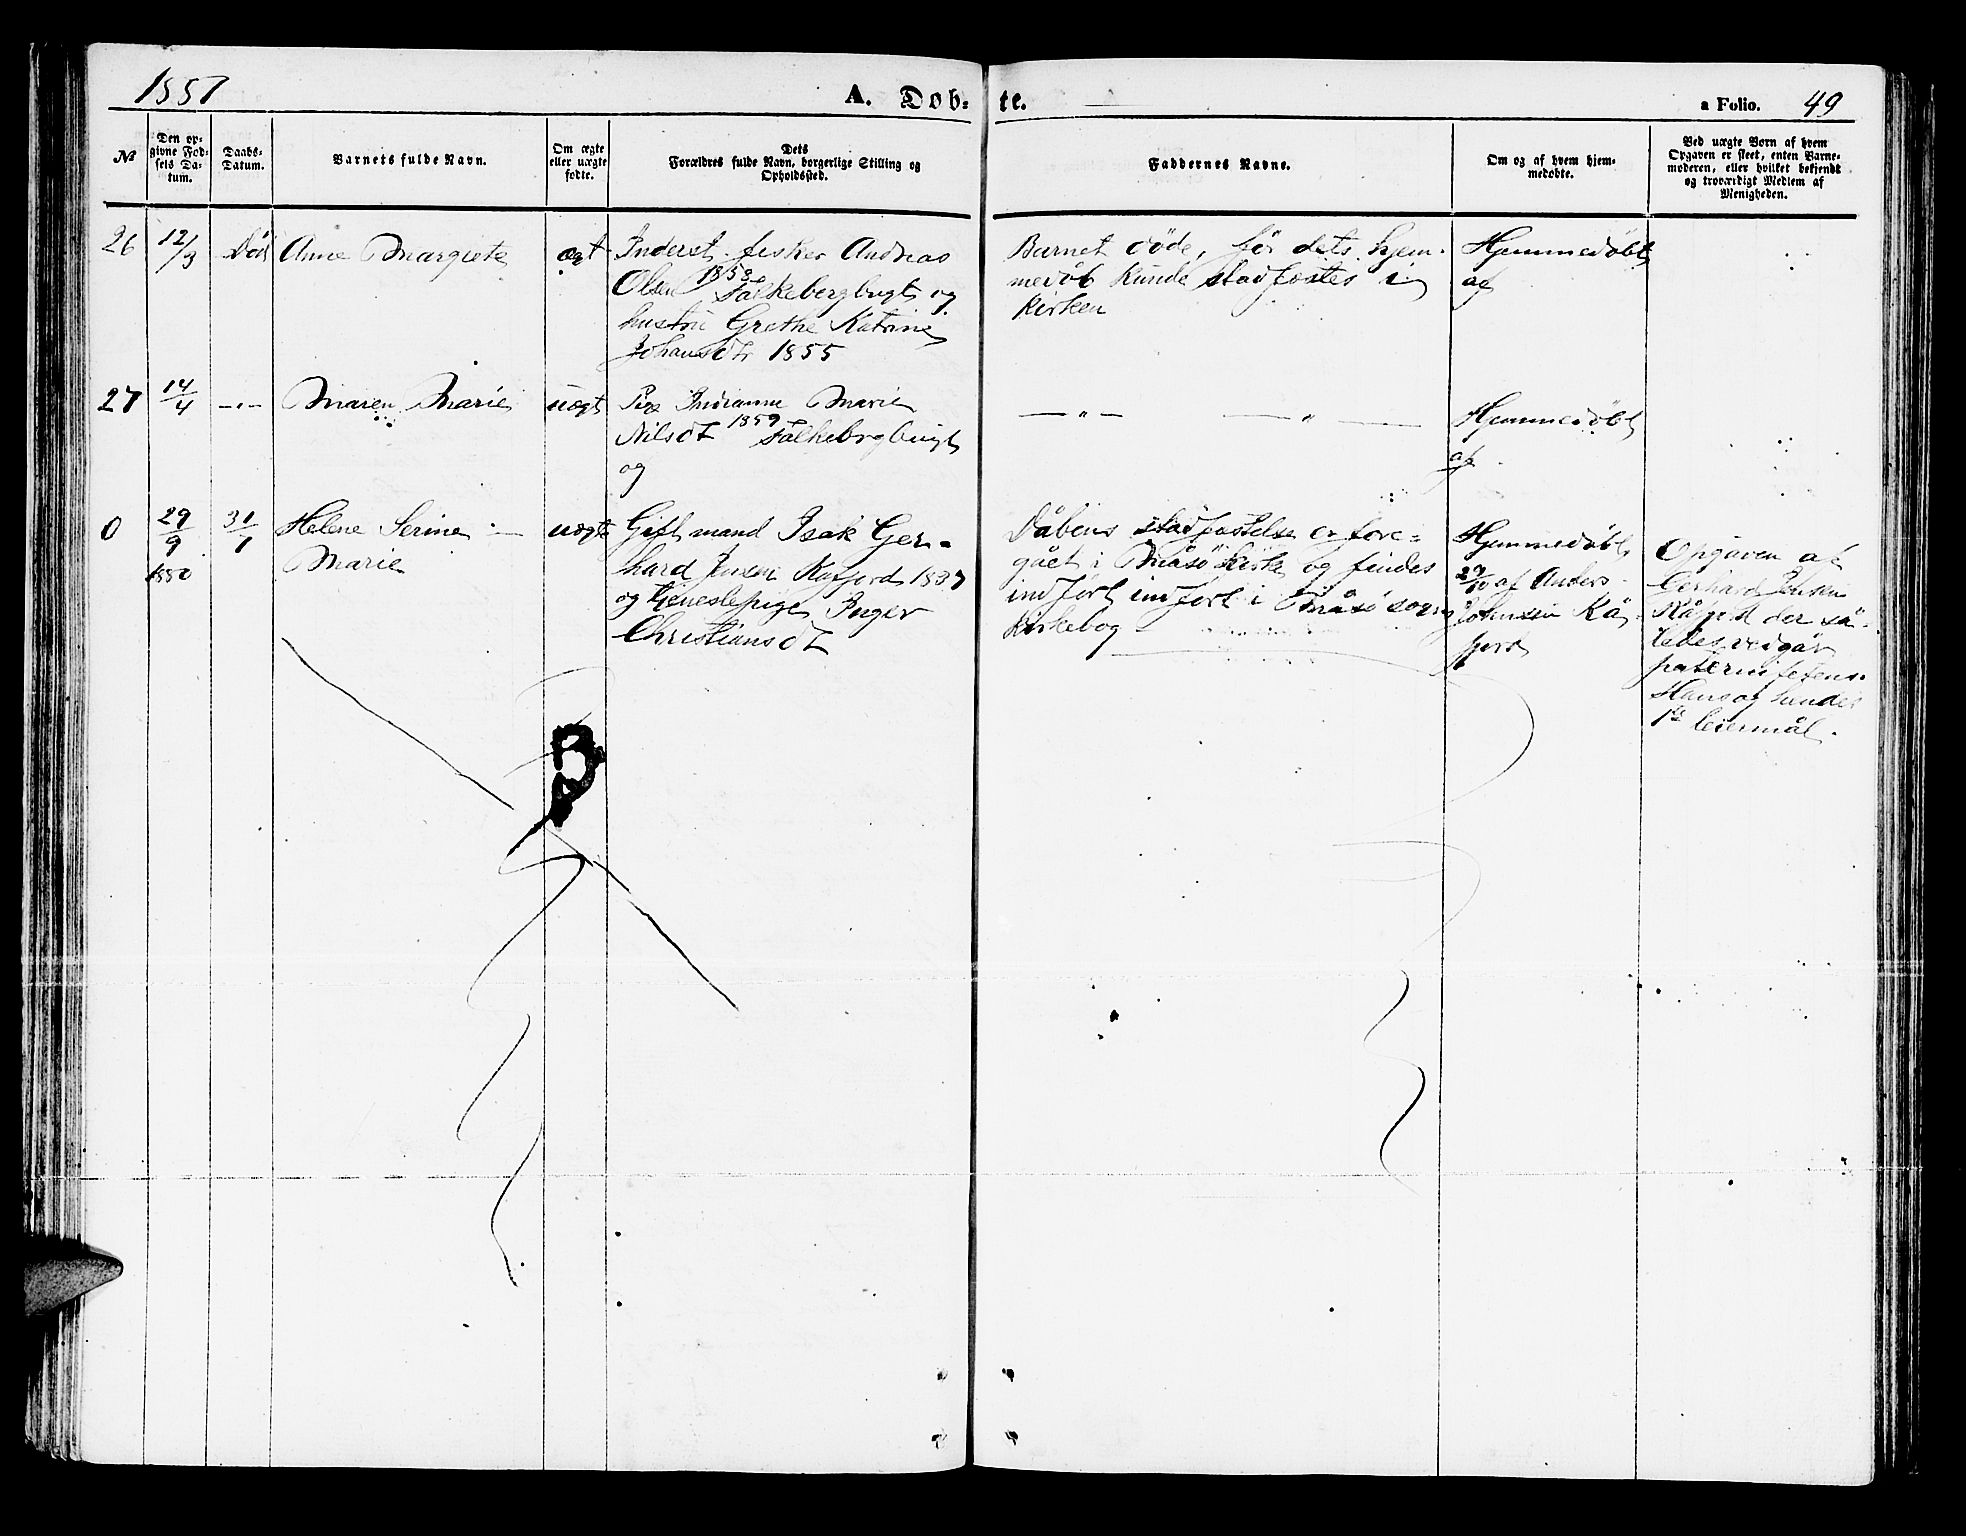 1881
A. Døb-
te.
a Folio. 49
№
Den op-
givne Fød-
sels Da-
tum.
Daabs-
Datum.
Barnets fulde Navn.
Om ægte
eller uægte
fødte.
Dets
Forældres fulde Navn, borgerlige Stilling og
Opholdssted.
Faddernes Navne.
Om og af hvem hjem-
medøbte.
Ved uægte Børn af hvem
Opgaven er skeet, enten Barne-
moderen, eller hvilket bekjendt
og troværdigt Medlem af
Menigheden.
26
12/3
Død
Anne Margrete
ægt
Inderst. fisker Andreas
Olsen 1853 Falkebergbugt og
hustru Grethe Katrine
Johansdtr 1855
Barnet døde, før dets hjem-
medøb kunde stadfæstes i
kirken
Hjemmedøbt
af
27
14/4
—"—
Maren Marie
uægt
Pige Marie
Nilsdt 1859 Falkebrgbugt
og
—"— —"—
Hjemmedøbt
af
0
29/9
1880
31/7
Helene Serine
Marie
uægte
Gift mand Isak Ger-
hard Jensen Kafjord 1837
og tjenestepige Inger
Christiansdt
Dåbens stadfæstelse er fore-
gået i Måsø kirke og findes
indført indført i Måsø sogns
kirkebog
Hjemmedøbt
29/10 af Anders
Johnsen Kå-
fjord
Opgaven af
Gerhard Jensen
Kåfjord der så-
ledes vedgår
paterniteten.
Hans og hendes
1ste leiermål.